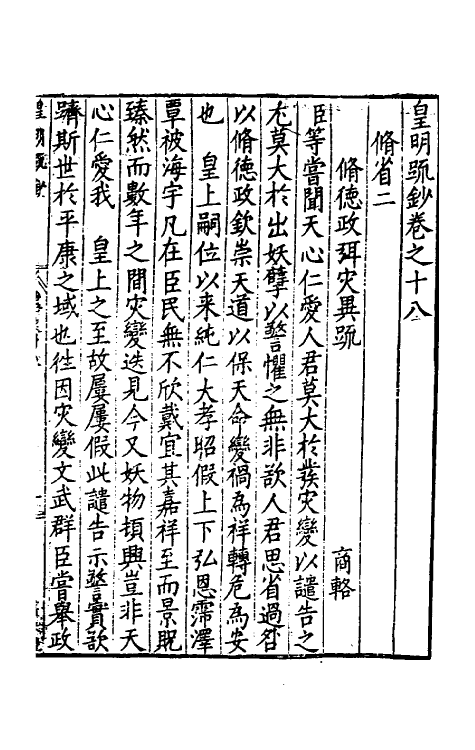 皇明疏鈔卷之十八
脩省二
脩德政弭灾異疏　商輅
臣等嘗聞天心仁愛人君莫大於發灾變以譴告之
尤莫大於出妖孽以警懼之無非欲人君思省過咎
以脩德政欽崇天道以保天命變禍為祥轉危為安
也　皇上嗣位以来純仁大孝昭假上下弘恩霈澤
覃被海宇凡在臣民無不欣戴宜其嘉祥至而景貺
臻然而數年之間灾變迭見今又妖物頓興豈非天
心仁愛我　皇上之至故屢屢假此譴告示警實欲
躋斯世於平康之域也徃因灾變文武群臣嘗舉政
皇明疏鈔